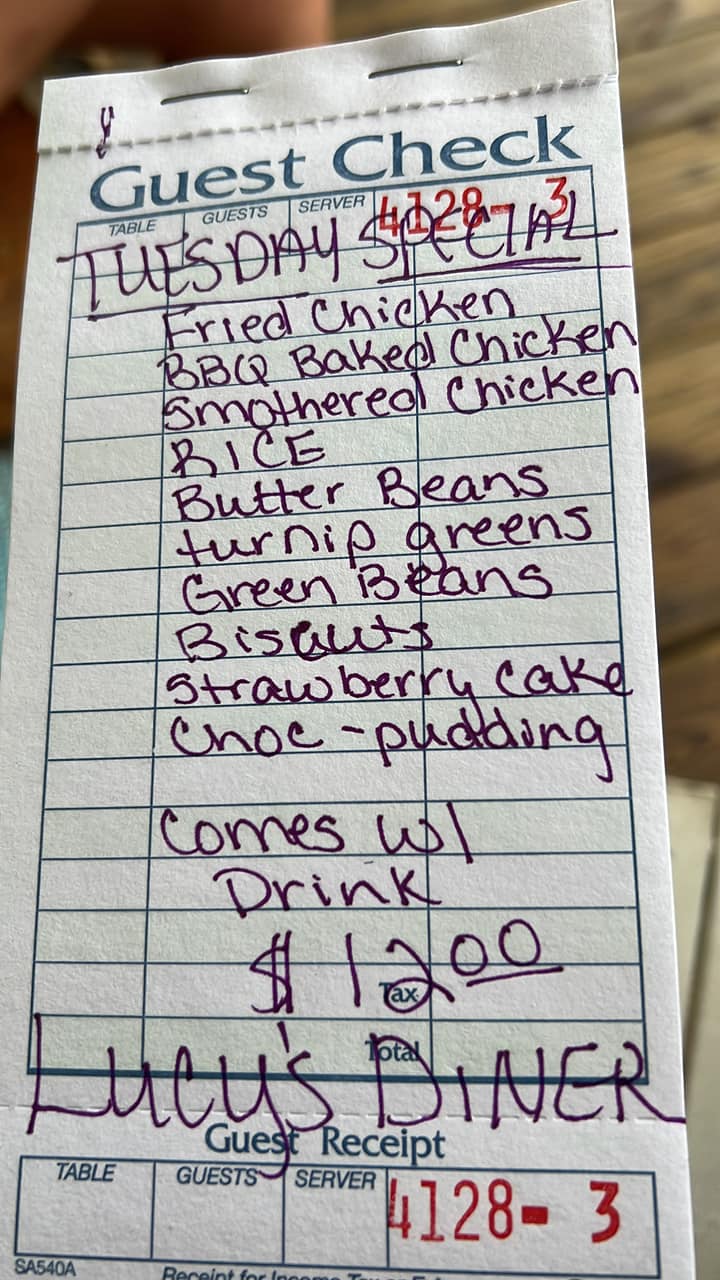 Guest Check
TABLE GUESTS SERVER 4128- 3
TUESDAY SPECIAL
Fried Chicken
BBQ Baked Chicken
Smothered Chicken
RICE
Butter Beans
turnip greens
Green Beans
Biscuts
Strawberry Cake
Choc-pudding
Comes w/
Drink
$12.00
Tax
Total
Lucy's DINER
Guest Receipt
TABLE GUESTS SERVER 4128- 3
SA540A
Receipt for